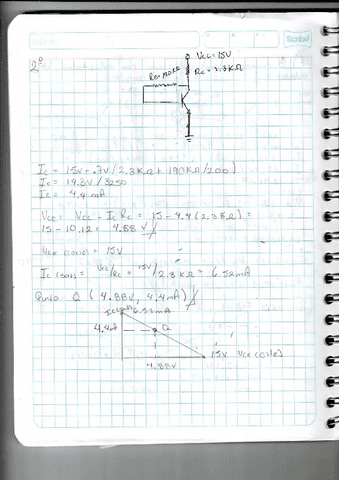 Scribe
2º
Vcc = 15V
Rc = 2.3 KΩ
Ic = 15V - .7V / 2.3KΩ + 190KΩ / 200
Ic = 14.3V / 3250
Ic = 4.4 mA
Vce = Vcc - Ic Rc = 15 - 4.4 (2.3KΩ) =
15 - 10.12 = 4.88 V
Vce (corte) = 15V
Ic (sat) = Vcc/Rc = 15V/2.3KΩ = 6.52mA
Punto Q (4.88V, 4.4mA)
Ic(sat) 6.52mA
4.4mA
Q
15V Vce (corte)
4.88V